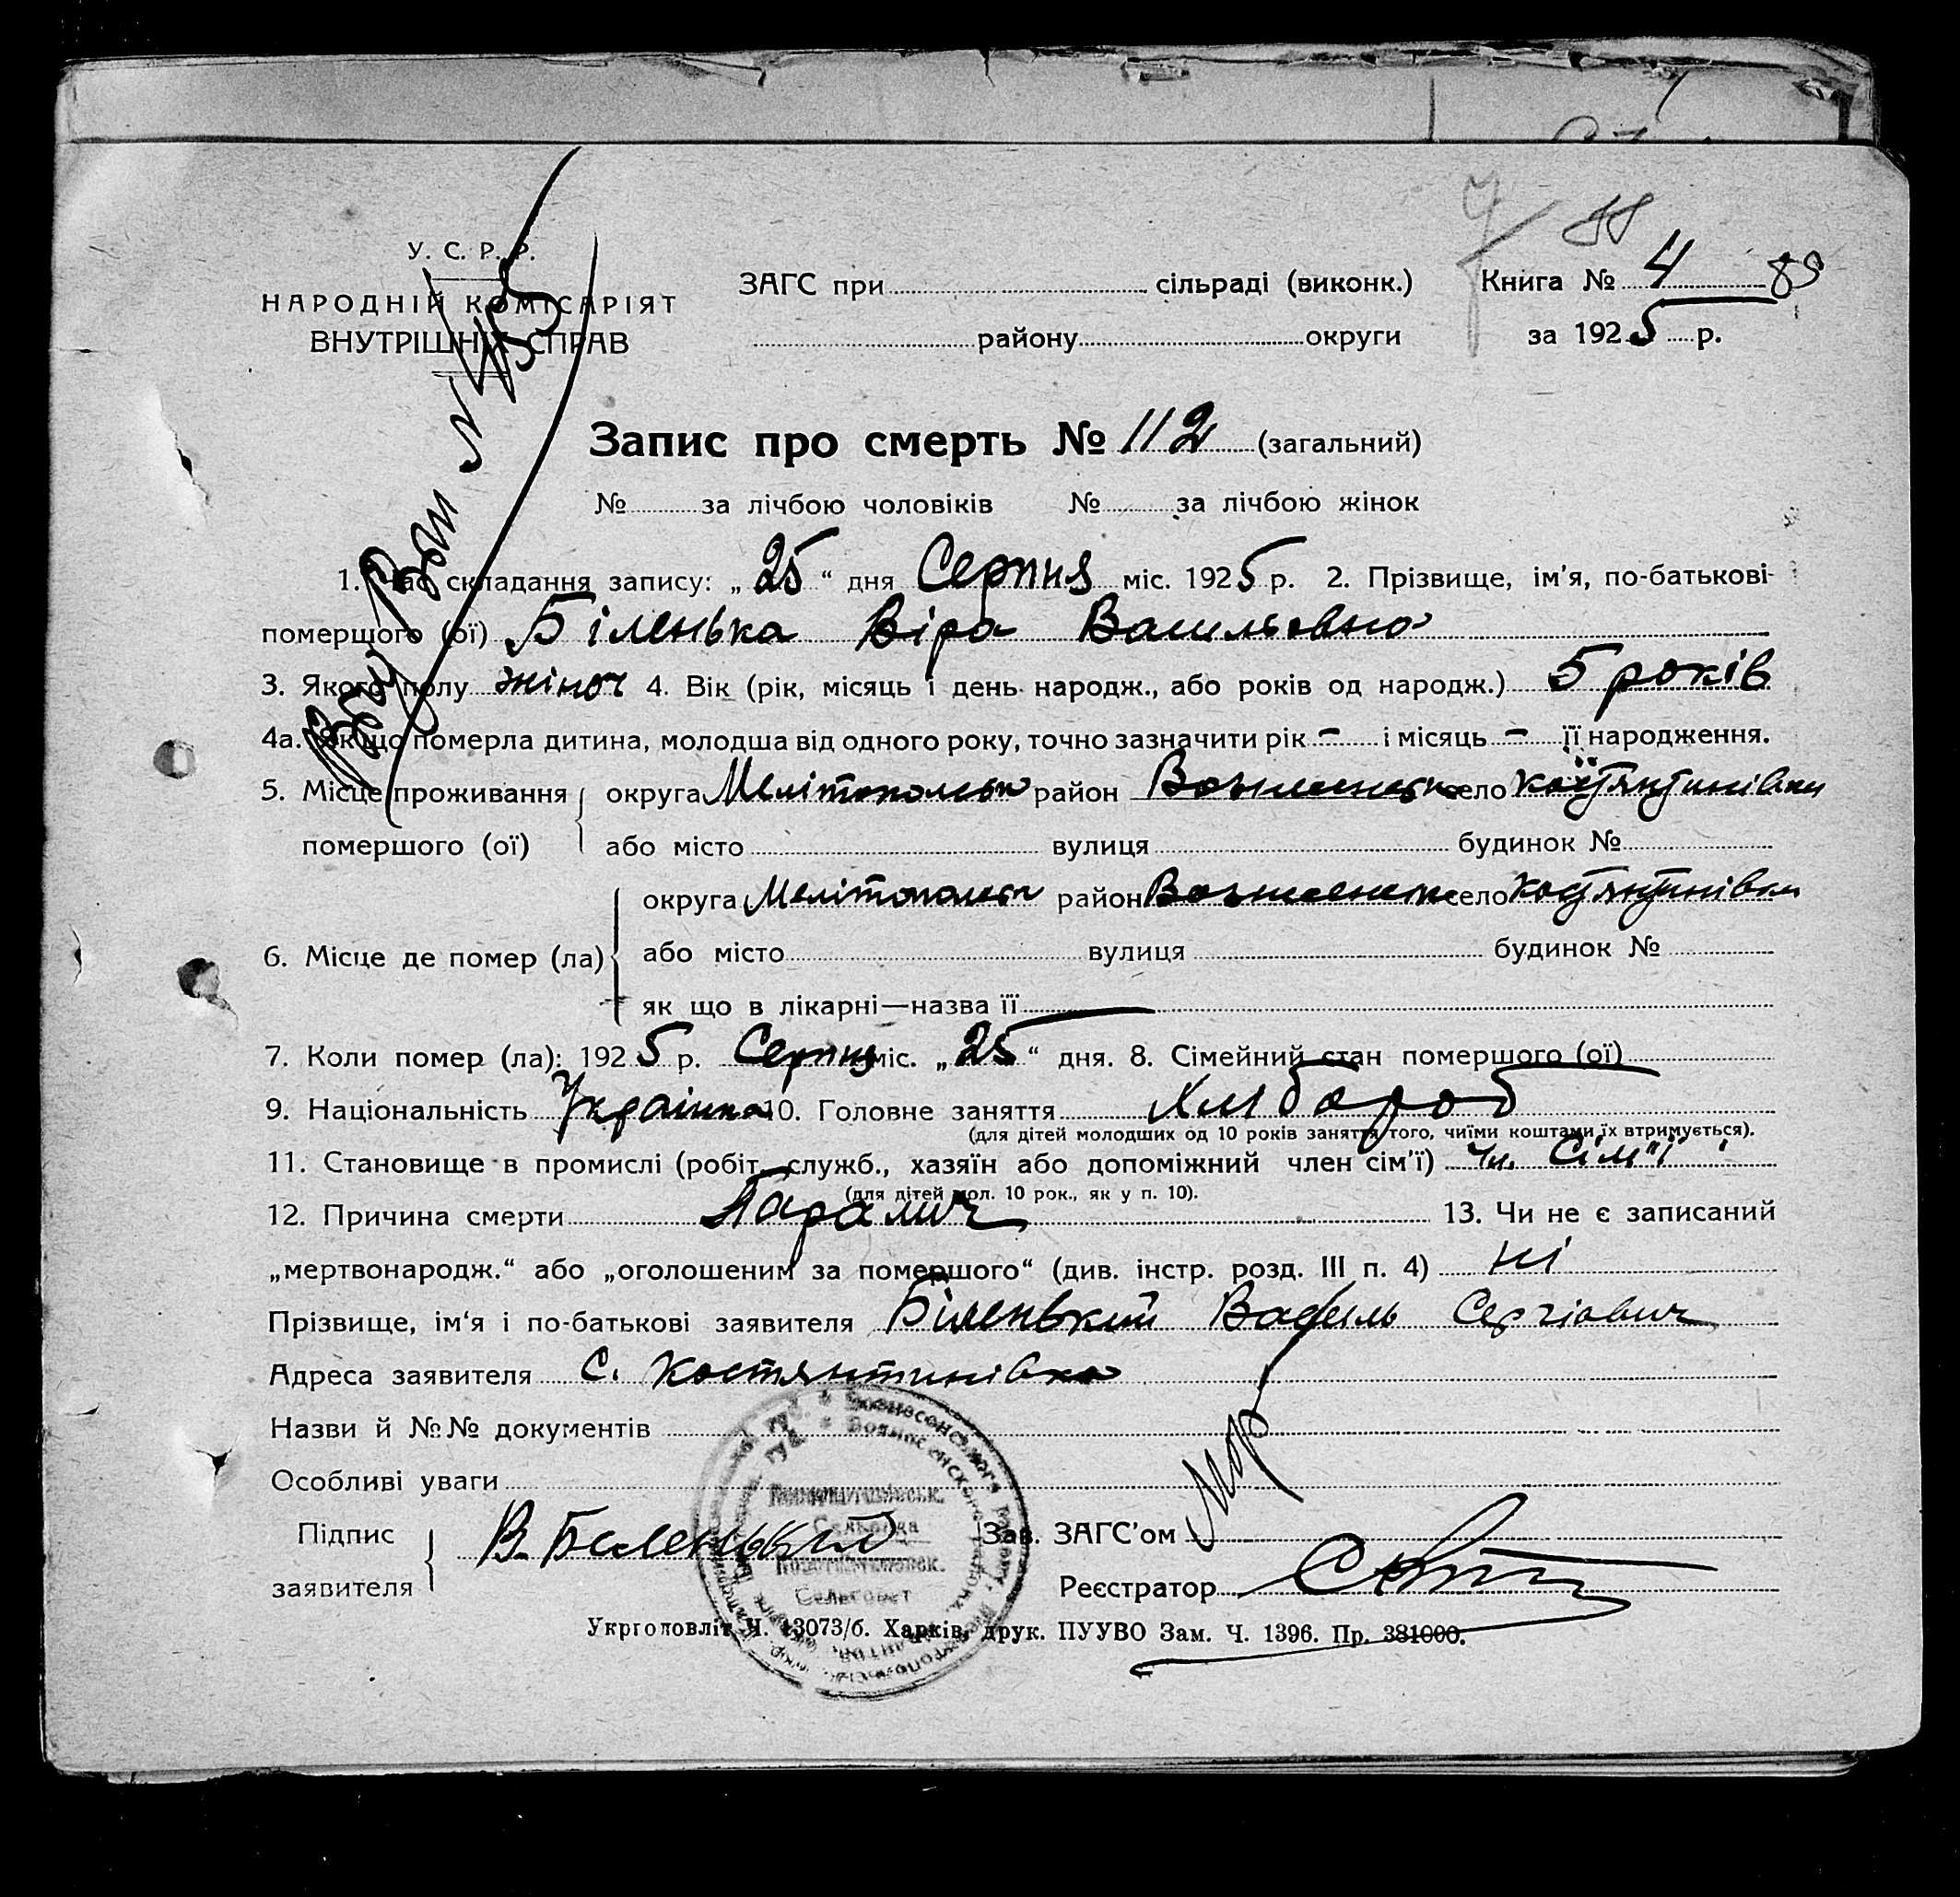 У. С. Р. Р.
НАРОДНІЙ КОМІСАРІЯТ
ВНУТРІШНІХ СПРАВ
ЗАГС при сільраді (виконк.)
району округи
Книга № 4 89
за 1925 р.
Запис про смерть № 112 (загальний)
№ за лічбою чоловіків № за лічбою жінок
1. Час складання запису: „25“ дня Серпня міс. 1925 р. 2. Прізвище, ім'я, по-батькові
помершого (ої) Біленька Віра Васильовна
3. Якого полу жіноч 4. Вік (рік, місяць і день народж., або років од народж.) 5 років
4а. Як що померла дитина, молодша від одного року, точно зазначити рік – і місяць – її народження.
5. Місце проживання помершого (ої) округа Мелітопольск район село Костянтинівки
або місто вулиця будинок №
6. Місце де помер (ла) округа Мелітопольск район село Костянтинівки
або місто вулиця будинок №
як що в лікарні—назва її
7. Коли помер (ла): 1925 р. Серпня міс. „25“ дня. 8. Сімейний стан помершого (ої)
9. Національність Українка 10. Головне заняття Хлібороб
(для дітей молодших од 10 років заняття того, чиїми коштами їх втримується).
11. Становище в промислі (робіт., служб., хазяїн або допоміжний член сім'ї) Чл. Сім'ї
(для дітей мол. 10 рок., як у п. 10).
12. Причина смерти Параліч 13. Чи не є записаний
„мертвонародж.“ або „оголошеним за помершого“ (див. інстр. розд. III п. 4) ні
Прізвище, ім'я і по-батькові заявителя Біленький Василь Сергіович
Адреса заявителя С. Костянтинівка
Назви й №№ документів
Особливі уваги
Підпис заявителя В. Беленький
Зав. ЗАГС'ом
Реєстратор
Укрголовліт Ч. 13073/б. Харків, друк. ПУУВО Зам. Ч. 1396. Пр. 381000.